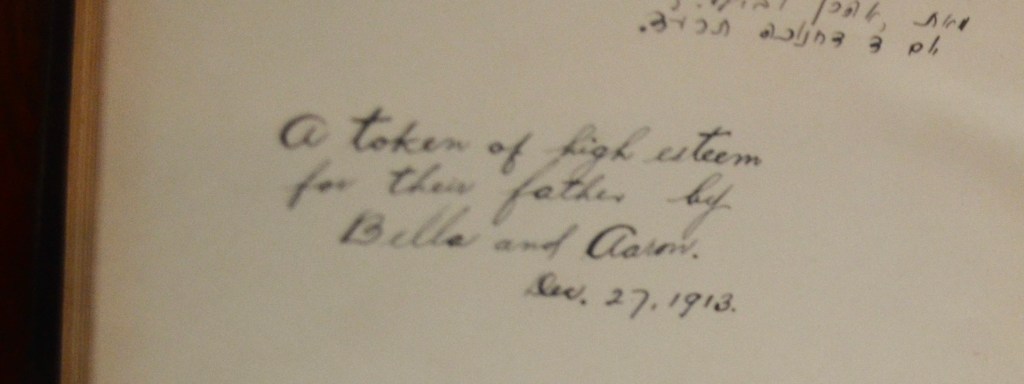 מאת אהרן
יום ד דחנוכה תרע״ד.
A token of high esteem
for their father by
Bella and Aaron.
Dec. 27, 1913.